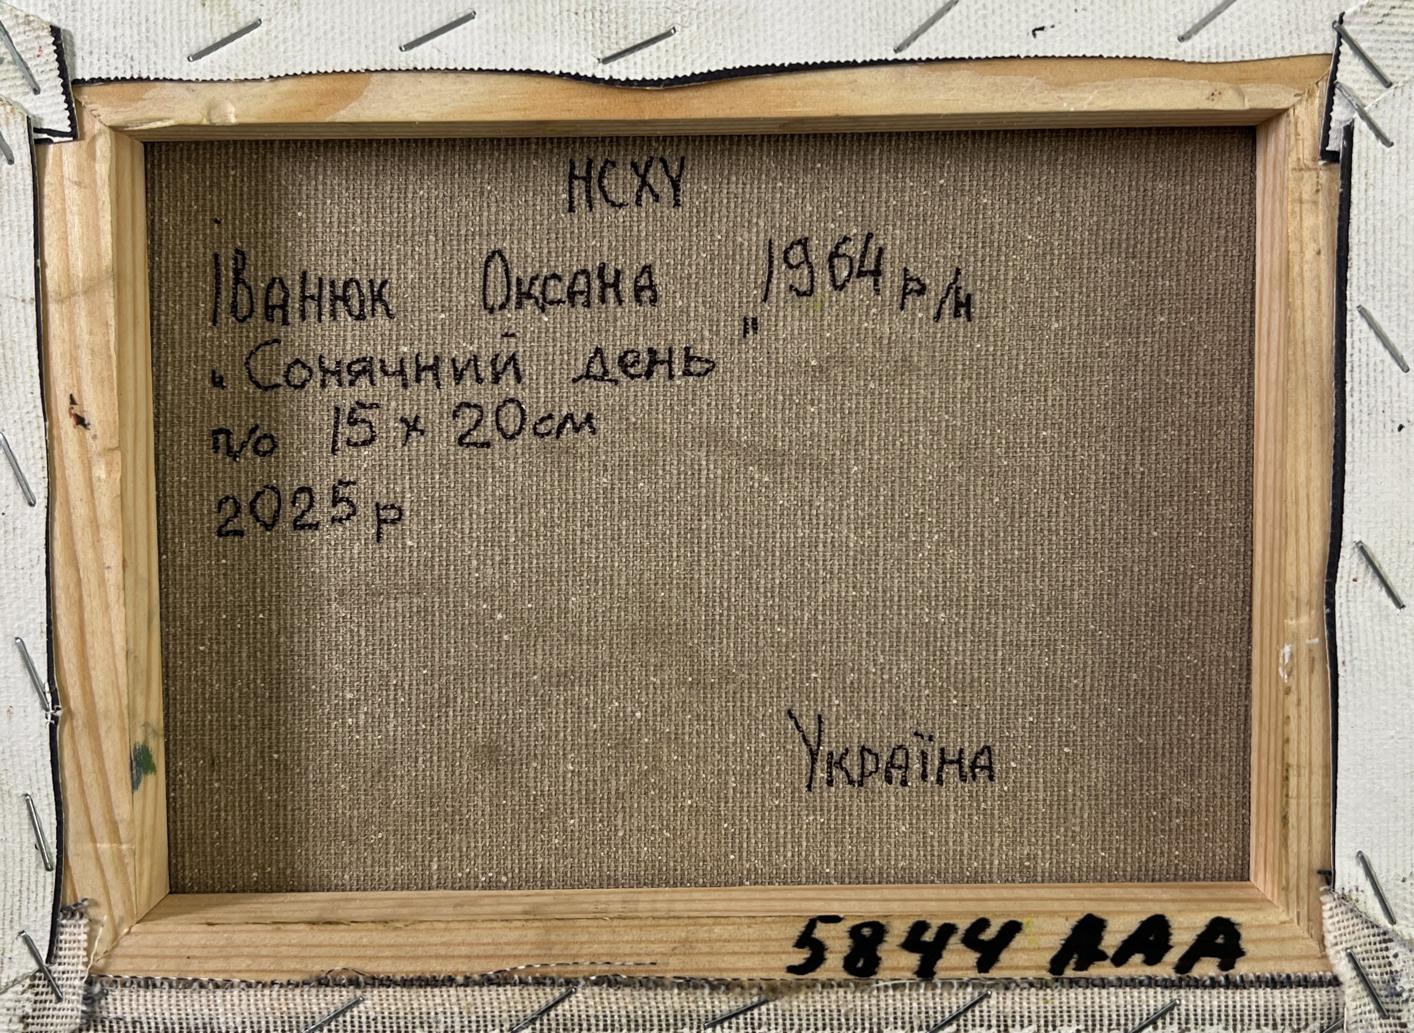 НСХУ
Іванюк Оксана 1964 р/н
„Сонячний день"
п/о 15 х 20см
2025р
Україна
5844 ААА